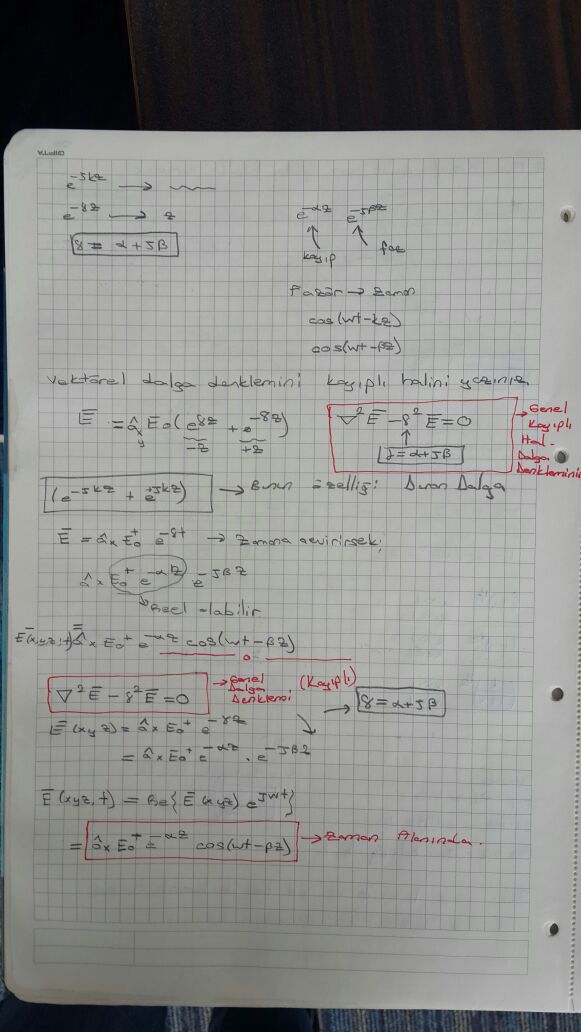 V.Lull@
e^-jkz →
e^-γz → z
γ = α + jβ
e^-αz e^-jβz
kayıp faz
Fazör → zaman
cos(wt-kz)
cos(wt-βz)
Vektörel dalga denklemini kayıplı halini yazınız
Ē = âx Eo(e^γz + e^-γz)
y -z +z
∇²Ē - γ²Ē = 0
γ = α + jβ
→ Genel
Kayıplı
Hal.
Dalga
Denklemini
(e^-jkz + e^+jkz) → Bunun özelliği: Duran Dalga
Ē = âx Eo⁺ e^-γt → Zamana çevirirsek;
âx Eo⁺ e^-αz e^-jβz
Reel olabilir
Ē(x,y,z,t) = âx Eo⁺ e^-αz cos(wt-βz)
∇²Ē - γ²Ē = 0 → Genel
Dalga
Denklemi
(Kayıplı)
→ γ = α + jβ
Ē(xyz) = âx Eo⁺ e^-γz
= âx Eo⁺ e^-αz . e^-jβz
Ē(xyz,t) = Re{Ē(xyz) e^jwt}
= âx Eo⁺ e^-αz cos(wt-βz) → Zaman Alanında.